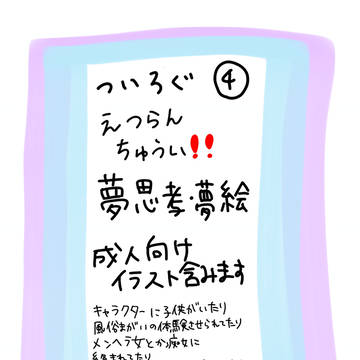 ついろぐ ④
えつらん
ちゅうい!!
夢思孝・夢絵
成人向け
イラスト含みます
キャラクターに子供がいたり
風俗まがいの体験させられてたり
メンヘラ女とか痴女に